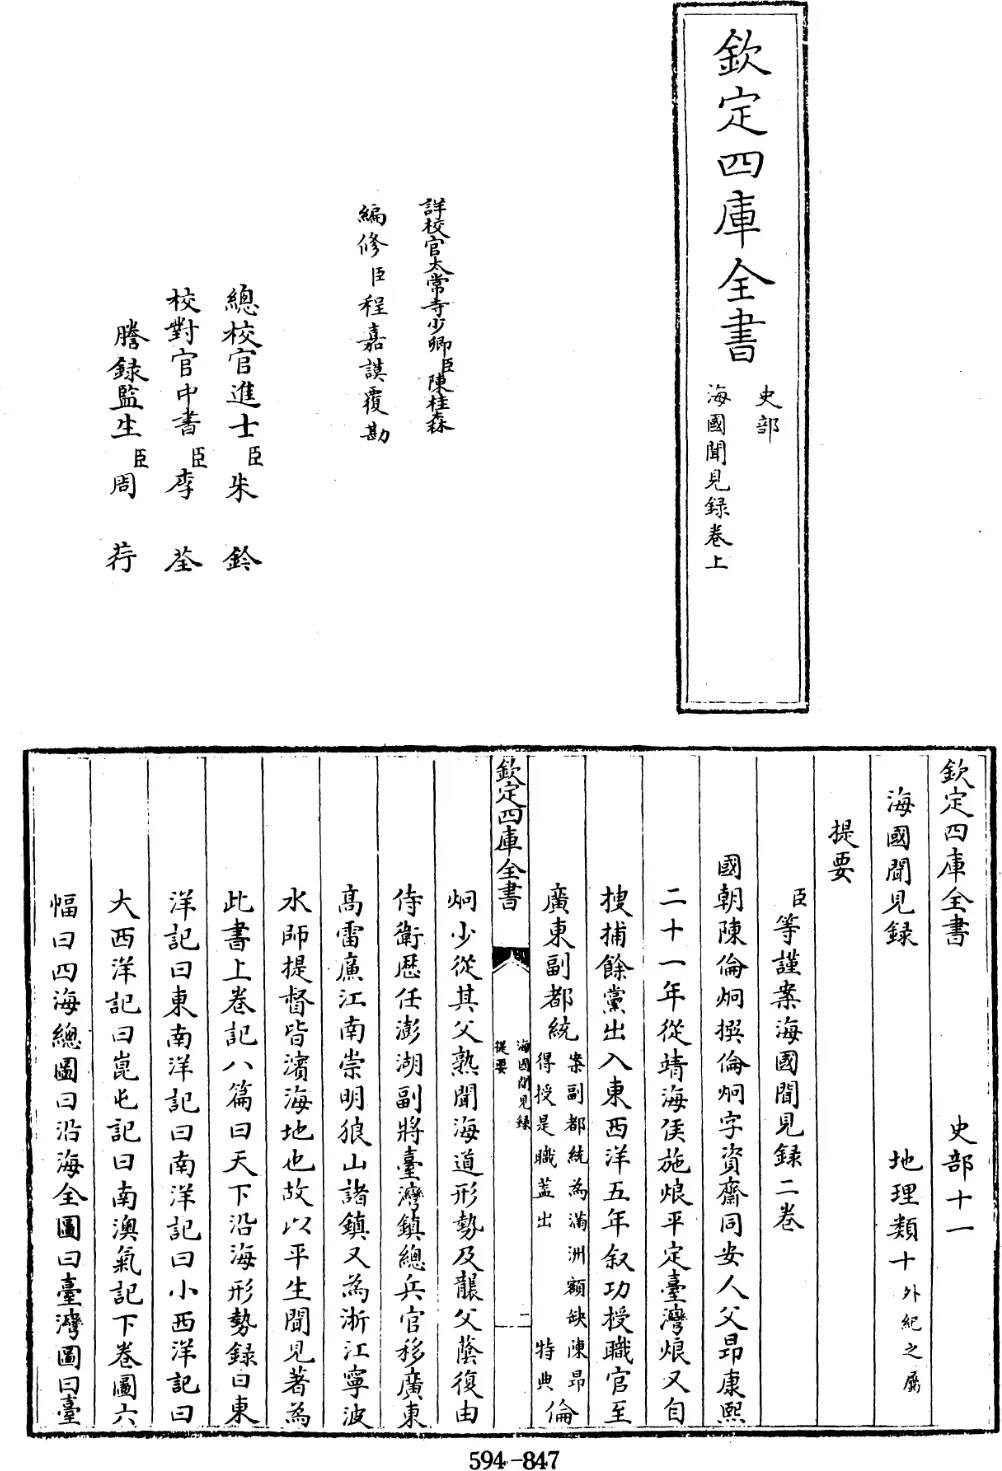 欽定四庫全書
史部
海國聞見録卷上
詳校官太常寺少卿臣陳桂森
編修臣程嘉謨覆勘
總校官進士臣朱鈐
校對官中書臣李荃
謄録監生臣周荇
欽定四庫全書 史部十一
海國聞見録 地理類十外紀之屬
提要
臣等謹案海國聞見録二卷
國朝陳倫炯撰倫炯字資齋同安人父昂康熙
二十一年從靖海侯施烺平定臺灣烺又自
搜捕餘黨出入東西洋五年叙功授職官至
廣東副都統案副都統為滿洲額缺陳昂得授是職葢出 特典倫
欽定四庫全書 海國聞見録 提要 二
炯少從其父熟聞海道形勢及襲父蔭復由
侍衛歴任澎湖副將臺灣鎮總兵官移廣東
高雷廉江南崇明狼山諸鎮又為浙江寧波
水師提督皆濱海地也故以平生聞見著為
此書上卷記八篇曰天下沿海形勢録曰東
洋記曰東南洋記曰南洋記曰小西洋記曰
大西洋記曰崑屯記曰南澳氣記下卷圖六
幅曰四海總圖曰沿海全圖曰臺灣圖曰臺
594-847